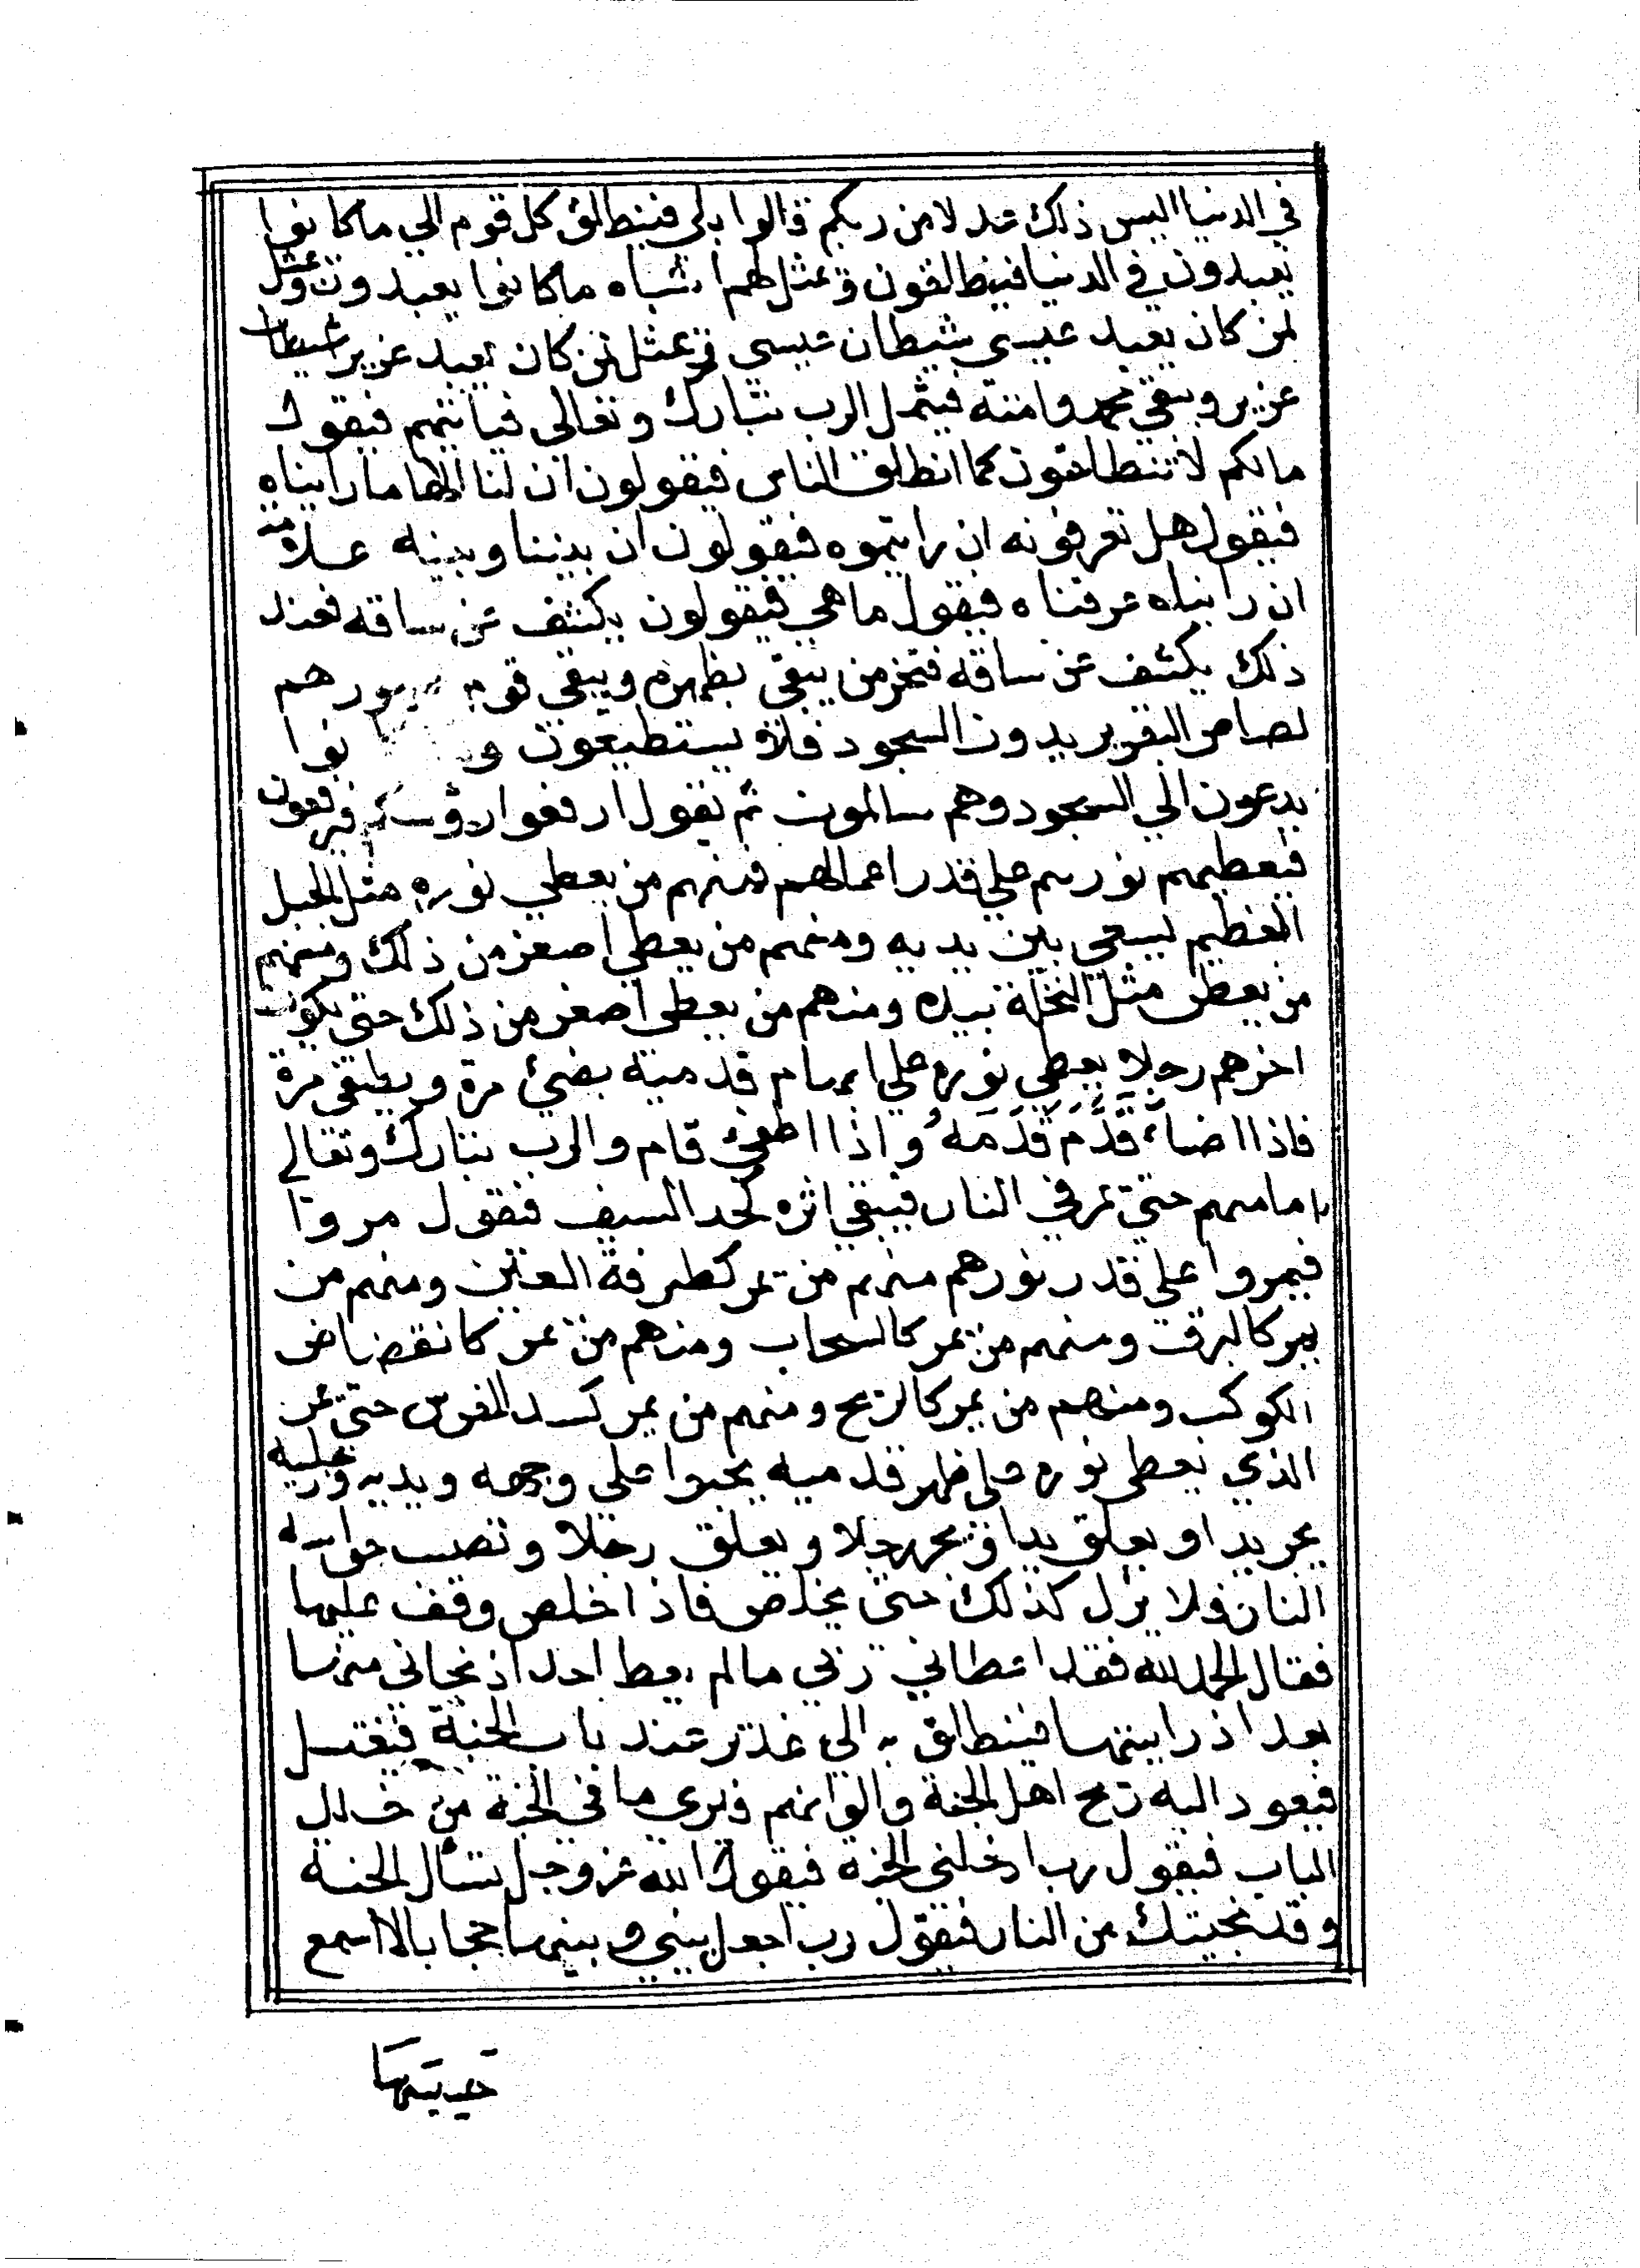 في الدنيا اليس ذلك عدلا من ربكم قالوا بلى فينطلق كل قوم الي ما كانوا
يعبدون في الدنيا فينطلقون ويمثل لهم اشباه ما كانوا يعبدون ويمثل
لمن كان يعبد عيسي شيطان عيسي ويمثل لمن كان يعبد عزير شيطان
عزير ويبقي محمد وامته فيتمثل الرب تبارك وتعالي فياتيهم فيقول
مالكم لا تنطلقون كما انطلق الناس فيقولون ان لنا الاها ما رايناه
فيقول هل تعرفونه ان رايتموه فيقولون ان بيننا وبينه علامة
ان رايناه عرفناه فيقول ما هي فيقولون يكشف عن ساقه فعند
ذلك يكشف عن ساقه فتخر من يبقي بظهره ويبقي قوم ظهورهم
لصاصي البقر يريدون السجود فلا يستطيعون و نوا
يدعون الي السجود وهم سالمون ثم يقول ارفعوا رؤسكم فيرفعون
فيعطيهم نورهم علي قدر اعمالهم فمنهم من يعطي نوره مثل الجبل
العظيم يسعي بين يديه ومنهم من يعطي اصغر من ذلك ومنهم
من يعطى مثل النخلة بيده ومنهم من يعطى اصغر من ذلك حتى يكون
اخرهم رجلا يعطي نوره علي ابهام قدميه يضئ مرة ويطفي مرة
فاذا اضاء قَدَّمَ قَدَمَهُ واذا اطفئ قام والرب تبارك وتعالي
امامهم حتي يمر في النار فيبقي اثره كحد السيف فيقول مروا
فيمروا علي قدر نورهم منهم من يمر كطرفة العين ومنهم من
يمر كالبرق ومنهم من يمر كالسحاب ومنهم من يمر كانقضاض
الكوكب ومنهم من يمر كالريح ومنهم من يمر كشد الفرس حتي يمر
الذي يعطى نوره على ظهر قدميه يحبوا علي وجهه ويديه ورجليه
يجر يدا ويعلق يدا ويجر رجلا ويعلق رجلا وتصيب جوانبه
النار فلا يزل كذلك حتى يخلص فاذا خلص وقف عليها
فقال الحمد لله فقد اعطاني ربي مالم يعط احدا اذ نجاني منها
بعد اذ رايتها فينطلق به الي غدير عند باب الجنة فيغتسل
فيعود اليه ريح اهل الجنة والوانهم فيري ما في الجنة من خلال
الباب فيقول رب ادخلني الجنه فيقول الله عز وجل تسأل الجنة
وقد نجيتك من النار فيقول رب اجعل بيني وبينها حجابا لا اسمع
حسيسها